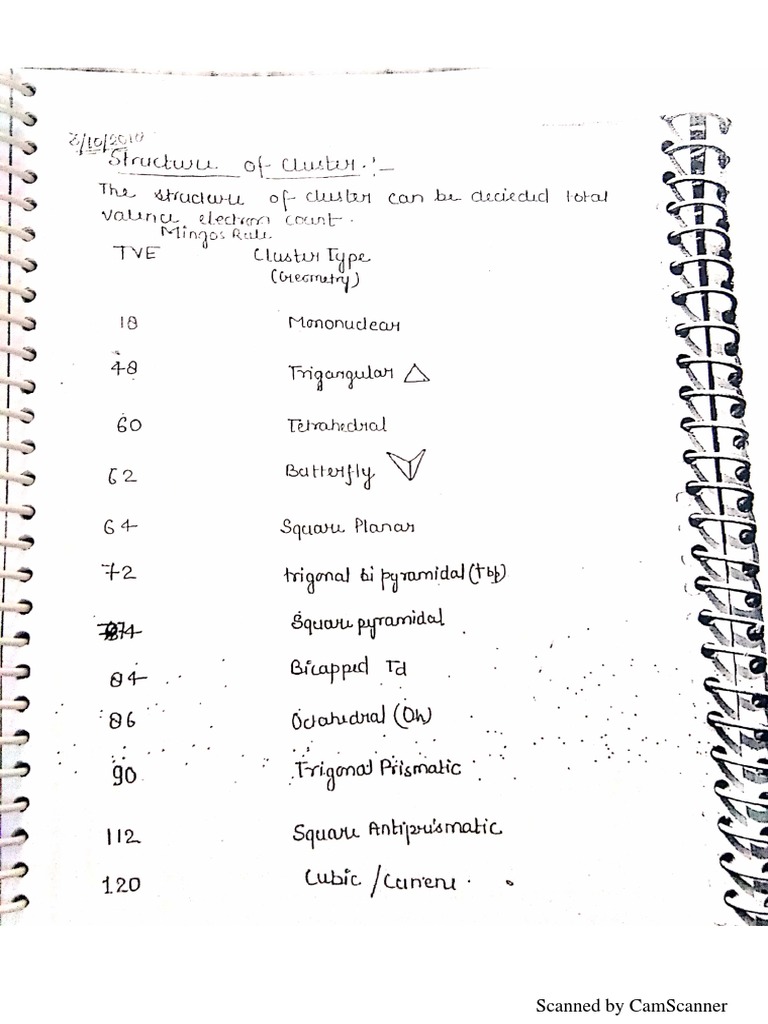 3/10/2018
Structure of Cluster :-
The structure of cluster can be decieded total
valence electron count.
Mingos Rule
TVE Cluster Type
(Geometry)
18 Mononuclear
48 Trigangular
60 Tetrahedral
62 Butterfly
64 Square Planar
72 trigonal bi pyramidal (tbp)
74 Square pyramidal
84 Bicapped Td
86 Octahedral (Oh)
90 Trigonal Prismatic
112 Square Antiprismatic
120 Cubic /
Scanned by CamScanner